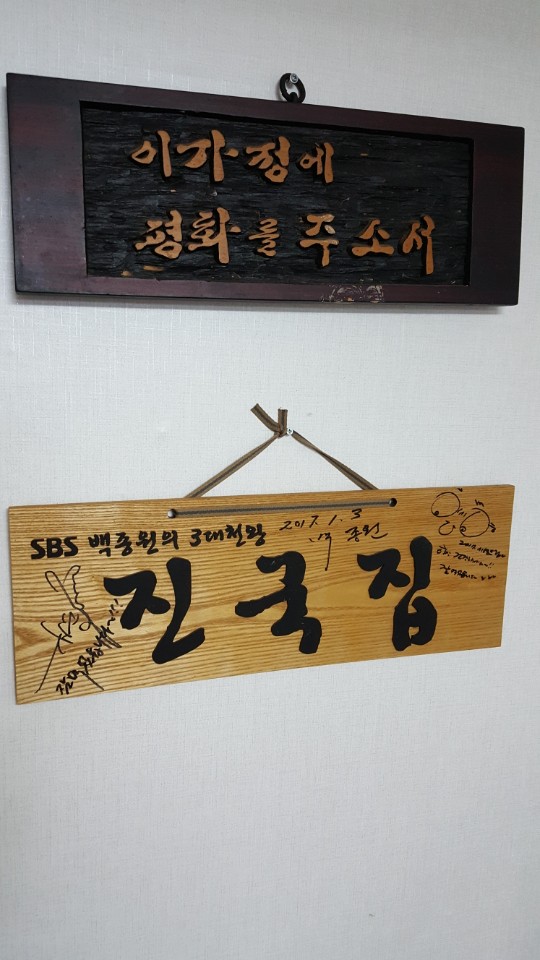 이 가정에
평화를 주소서
SBS 백종원의 3대천왕
2017. 1. 3
진국집